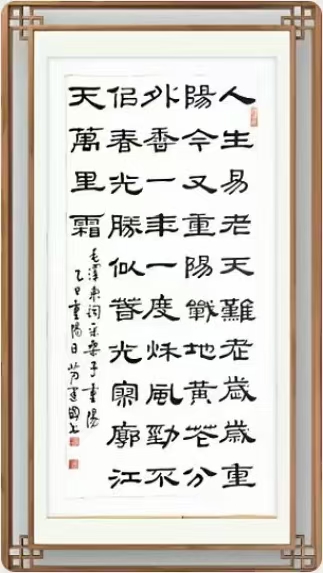 人生易老天難老歲歲重
陽今又重陽戰地黃花分
外香一年一度秋風勁不
佀春光勝似春光寥廓江
天萬里霜
毛澤東詞采桑子重陽
乙巳重陽日建國书